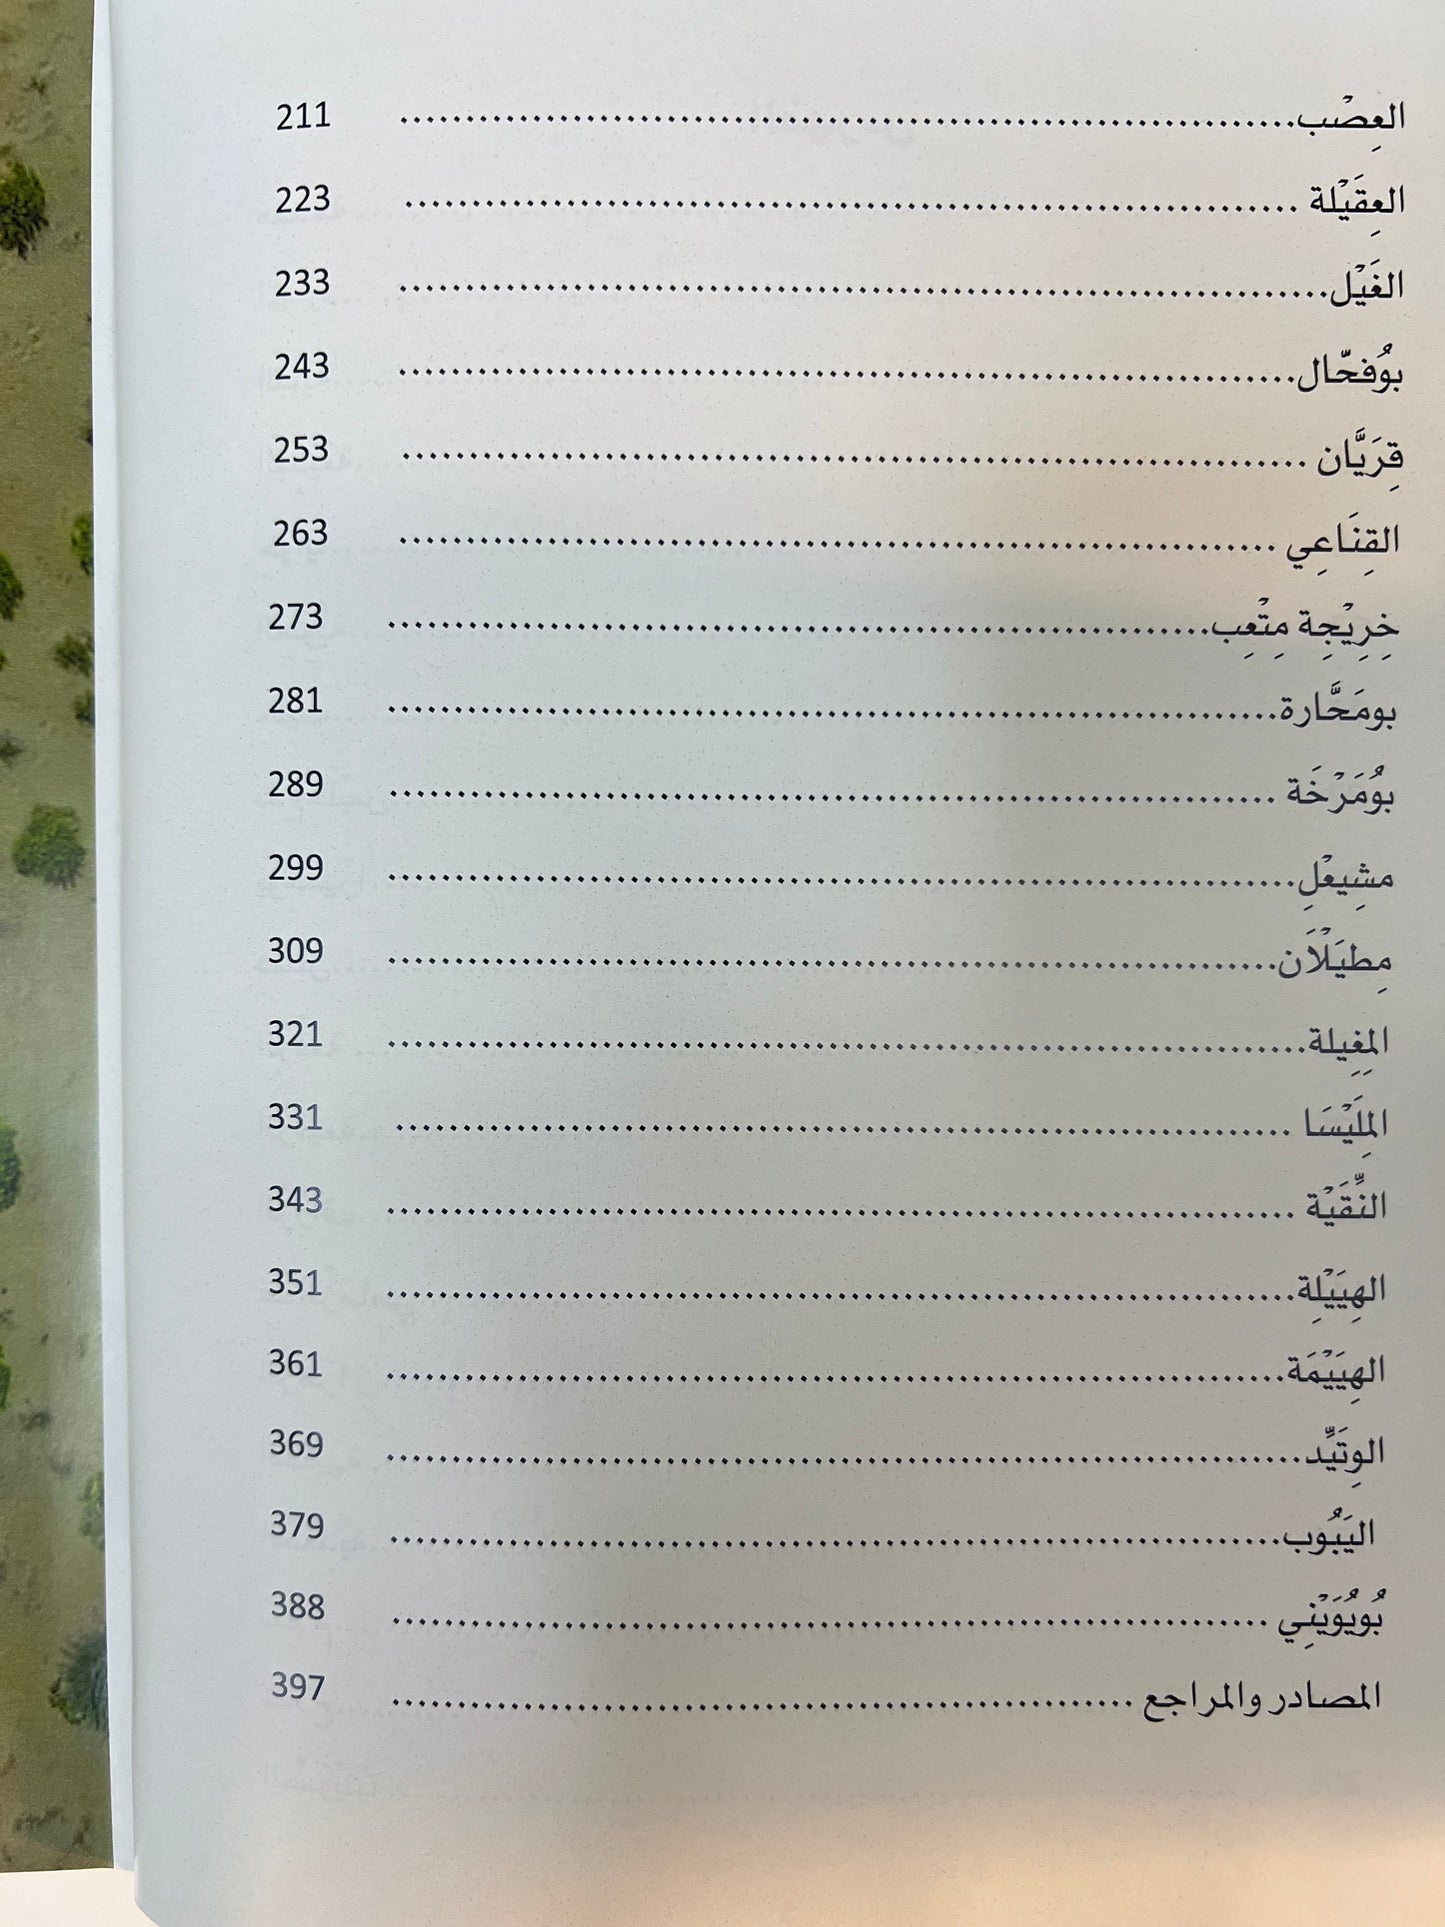 العِصْب........................................ 211
العِقَيْلة ........................................ 223
الغَيْل........................................ 233
بوُفحّال........................................ 243
قِرَيَّان ........................................ 253
القِنَاعِي ........................................ 263
خِرِيْجِة مِتْعِب........................................ 273
بومَحَّارة........................................ 281
بوُمَرْخَة ........................................ 289
مشِيعْلِ........................................ 299
مِطيَلْاَن........................................ 309
المِغِيلة........................................ 321
المِلَيْسَا ........................................ 331
النِّقَيْة ........................................ 343
الهِيَيْلِة........................................ 351
الهِيَيْمَة........................................ 361
الوِتَيِّد........................................ 369
اليَبُوب........................................ 379
بُويُوَيْنِي ........................................ 388
المصادر والمراجع ........................................ 397